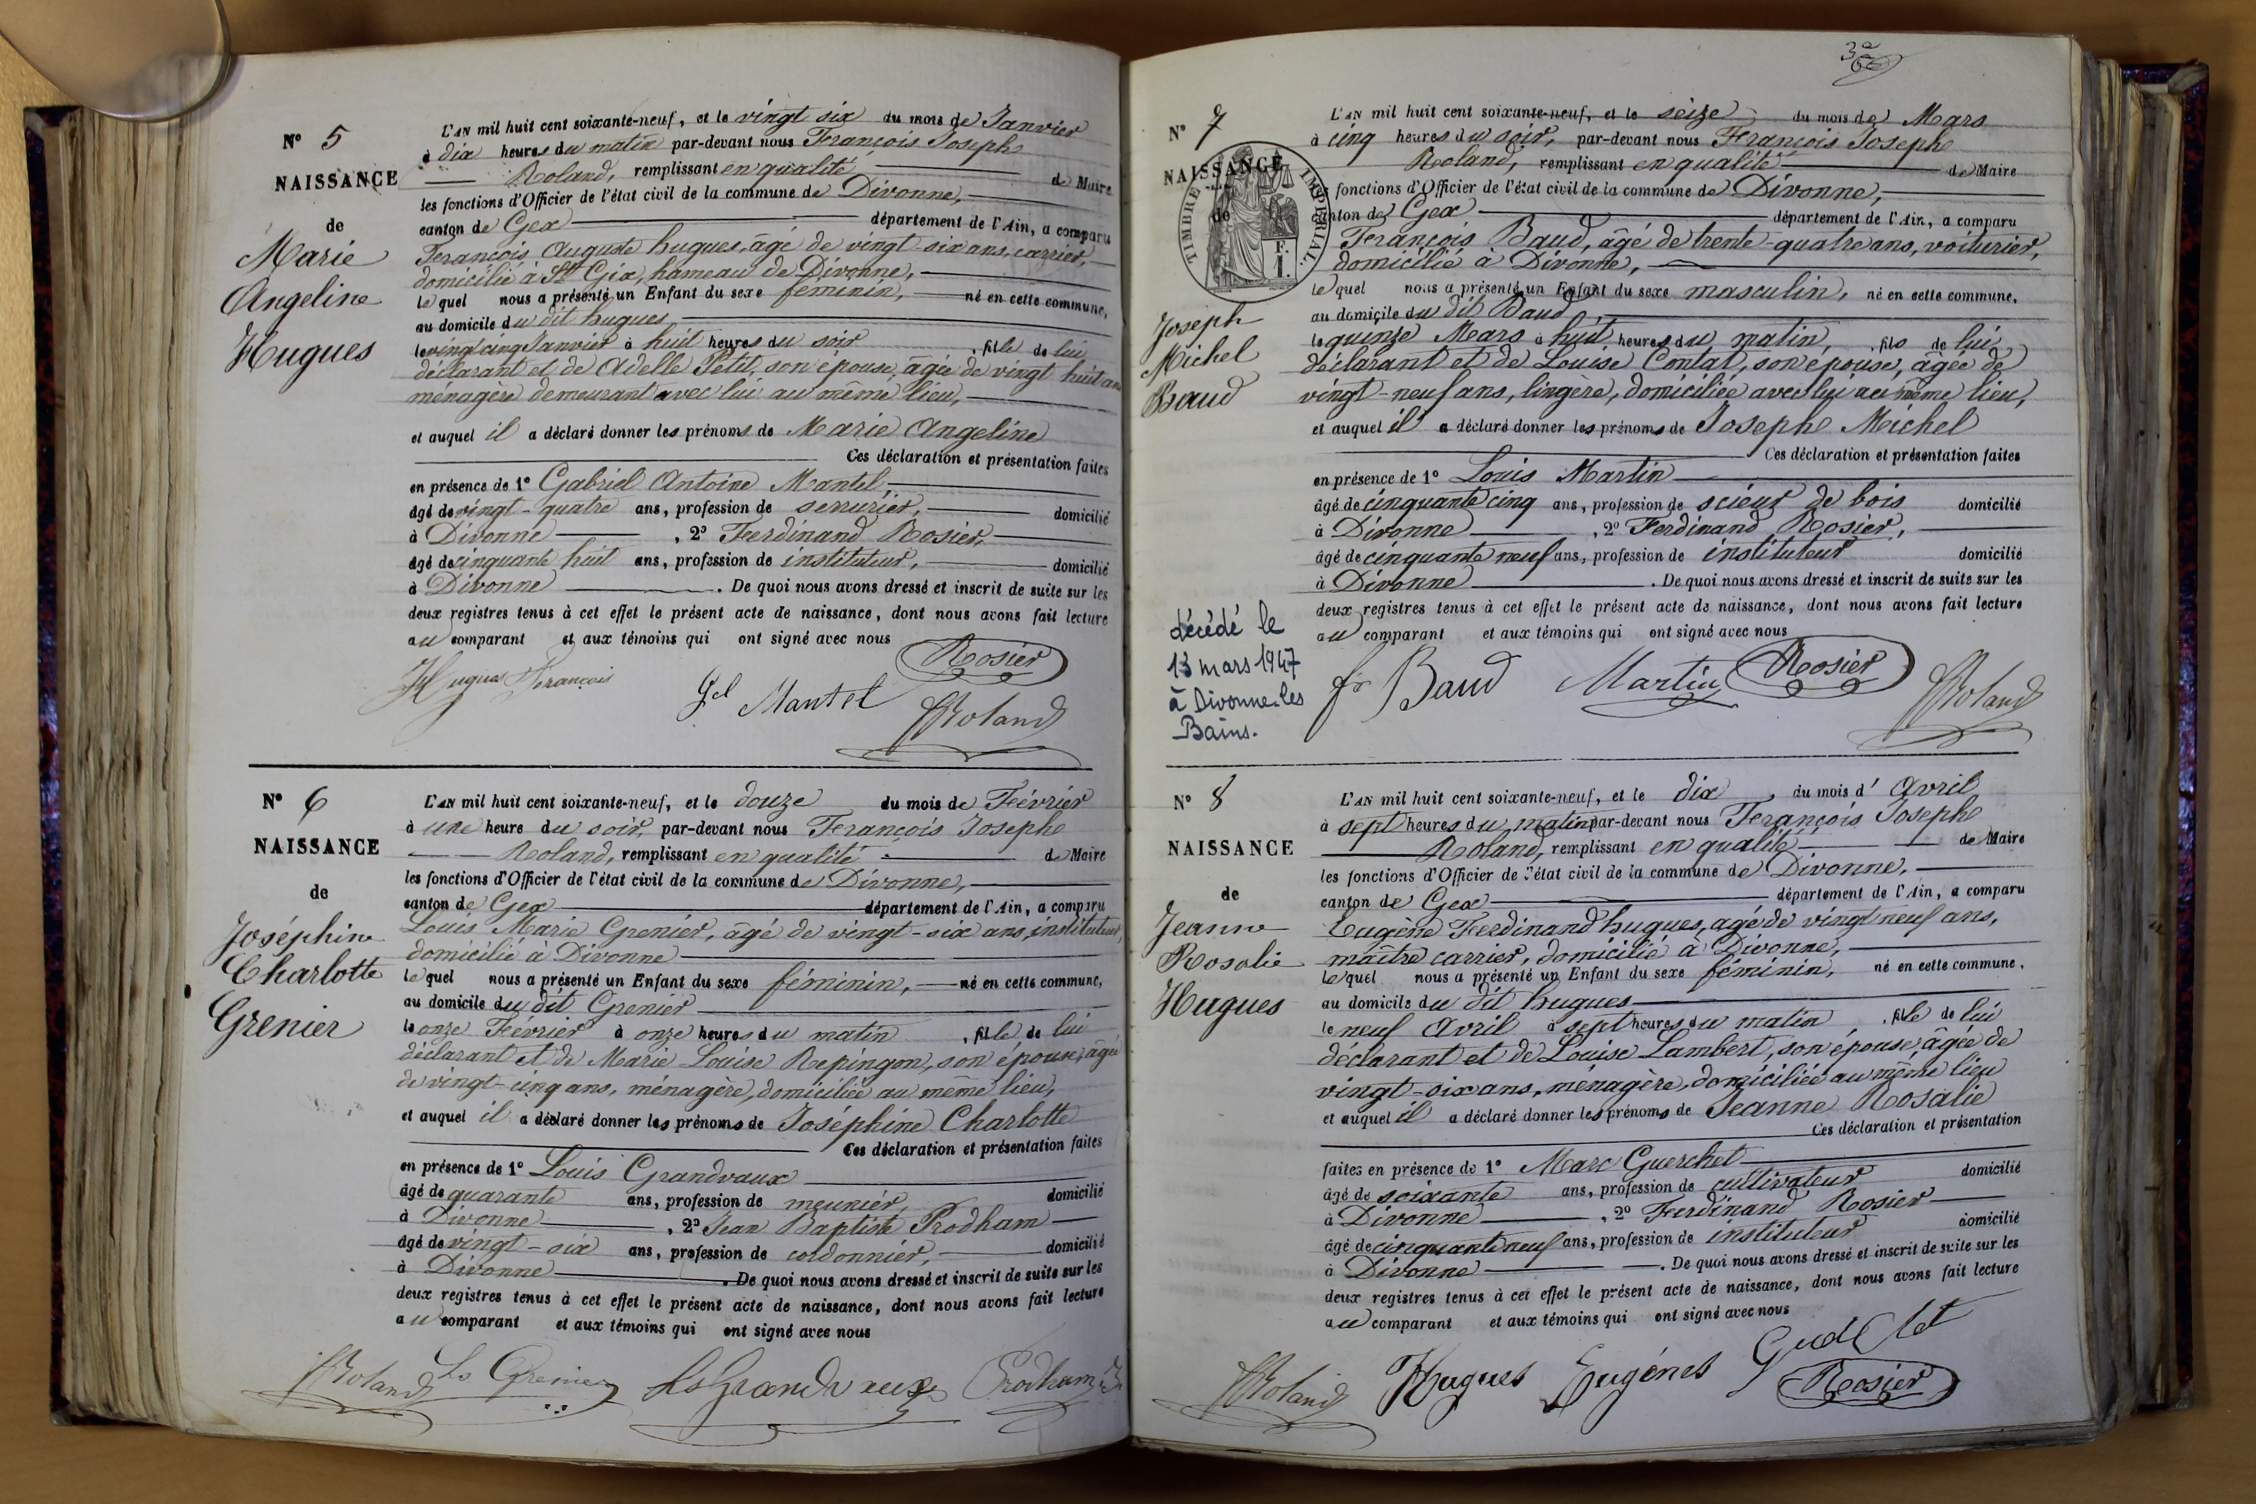 N° 5
NAISSANCE
de
Marie
Angeline
Hugues
L'AN mil huit cent soixante-neuf, et le vingt six du mois de Janvier
à dix heures du matin par-devant nous François Joseph
Roland, remplissant en qualité de Maire
les fonctions d'Officier de l'état civil de la commune de Divonne,
canton de Gex département de l'Ain, a comparu
François Auguste hugues, âgé de vingt-six ans, carrier,
domicilié à St Gix, hameau de Divonne,
le quel nous a présenté un Enfant du sexe féminin, né en cette commune,
au domicile du dit hugues
le vingt cinq Janvier à huit heures du soir, fille de lui
déclarant et de Adelle Petit, son épouse, âgée de vingt huit ans
ménagère demeurant avec lui au même lieu,
et auquel il a déclaré donner les prénoms de Marie Angeline
Ces déclaration et présentation faites
en présence de 1° Gabriel Antoine Mantel,
âgé de vingt-quatre ans, profession de serrurier, domicilié
à Divonne, 2° Ferdinand Rosier,
âgé de cinquante huit ans, profession de instituteur, domicilié
à Divonne. De quoi nous avons dressé et inscrit de suite sur les
deux registres tenus à cet effet le présent acte de naissance, dont nous avons fait lecture
au comparant et aux témoins qui ont signé avec nous
Hugues François Gel Mantel Rosier
Roland
N° 6
NAISSANCE
de
Joséphine
Charlotte
Grenier
L'AN mil huit cent soixante-neuf, et le douze du mois de Février
à une heure du soir, par-devant nous François Joseph
Roland, remplissant en qualité de Maire
les fonctions d'Officier de l'état civil de la commune de Divonne,
canton de Gex département de l'Ain, a comparu
Louis Marie Grenier, âgé de vingt-six ans, instituteur,
domicilié à Divonne
le quel nous a présenté un Enfant du sexe féminin, né en cette commune,
au domicile du dit Grenier
le onze Février à onze heures du matin, fille de lui
déclarant et de Marie Louise Repingon, son épouse, âgée
de vingt-cinq ans, ménagère, domiciliée au même lieu,
et auquel il a déclaré donner les prénoms de Joséphine Charlotte
Ces déclaration et présentation faites
en présence de 1° Louis Grandvaux
âgé de quarante ans, profession de meunier, domicilié
à Divonne, 2° Jean Baptiste Prodham
âgé de vingt-six ans, profession de cordonnier, domicilié
à Divonne. De quoi nous avons dressé et inscrit de suite sur les
deux registres tenus à cet effet le présent acte de naissance, dont nous avons fait lecture
au comparant et aux témoins qui ont signé avec nous
Roland Ls Grenier Ls Grandvaux Prodham
N° 7
NAISSANCE
de
TIMBRE IMPÉRIAL.
F.
1.
Joseph
Michel
Baud
L'AN mil huit cent soixante-neuf, et le seize du mois de Mars
à cinq heures du soir, par-devant nous François Joseph
Roland, remplissant en qualité de Maire
fonctions d'Officier de l'état civil de la commune de Divonne,
canton de Gex département de l'Ain, a comparu
François Baud, âgé de trente-quatre ans, voiturier,
domicilié à Divonne,
le quel nous a présenté un Enfant du sexe masculin, né en cette commune,
au domicile du dit Baud
le quinze Mars à huit heures du matin, fils de lui
déclarant et de Louise Contat, son épouse, âgée de
vingt-neuf ans, lingère, domiciliée avec lui au même lieu,
et auquel il a déclaré donner les prénoms de Joseph Michel
Ces déclaration et présentation faites
en présence de 1° Louis Martin
âgé de cinquante cinq ans, profession de scieur de bois domicilié
à Divonne, 2° Ferdinand Rosier,
âgé de cinquante neuf ans, profession de instituteur domicilié
à Divonne. De quoi nous avons dressé et inscrit de suite sur les
deux registres tenus à cet effet le présent acte de naissance, dont nous avons fait lecture
au comparant et aux témoins qui ont signé avec nous
décédé le
13 mars 1947
à Divonne-les
Bains.
fs Baud Martin Rosier Roland
N° 8
NAISSANCE
de
Jeanne
Rosalie
Hugues
L'AN mil huit cent soixante-neuf, et le dix, du mois d'Avril
à sept heures du matin par-devant nous François Joseph
Roland, remplissant en qualité de Maire
les fonctions d'Officier de l'état civil de la commune de Divonne,
canton de Gex département de l'Ain, a comparu
Eugène Ferdinand hugues, agé de vingt neuf ans,
maître carrier, domicilié à Divonne,
le quel nous a présenté un Enfant du sexe féminin, né en cette commune,
au domicile du dit hugues
le neuf Avril à sept heures du matin, fille de lui
déclarant et de Louise Lambert, son épouse, âgée de
vingt-six ans, ménagère, domiciliée au même lieu
et auquel il a déclaré donner les prénoms de Jeanne Rosalie
Ces déclaration et présentation
faites en présence de 1° Marc Guerchet
âgé de soixante ans, profession de cultivateur domicilié
à Divonne, 2° Ferdinand Rosier
âgé de cinquante neuf ans, profession de instituteur domicilié
à Divonne. De quoi nous avons dressé et inscrit de suite sur les
deux registres tenus à cet effet le présent acte de naissance, dont nous avons fait lecture
au comparant et aux témoins qui ont signé avec nous
Roland Hugues Eugénes
Rosier